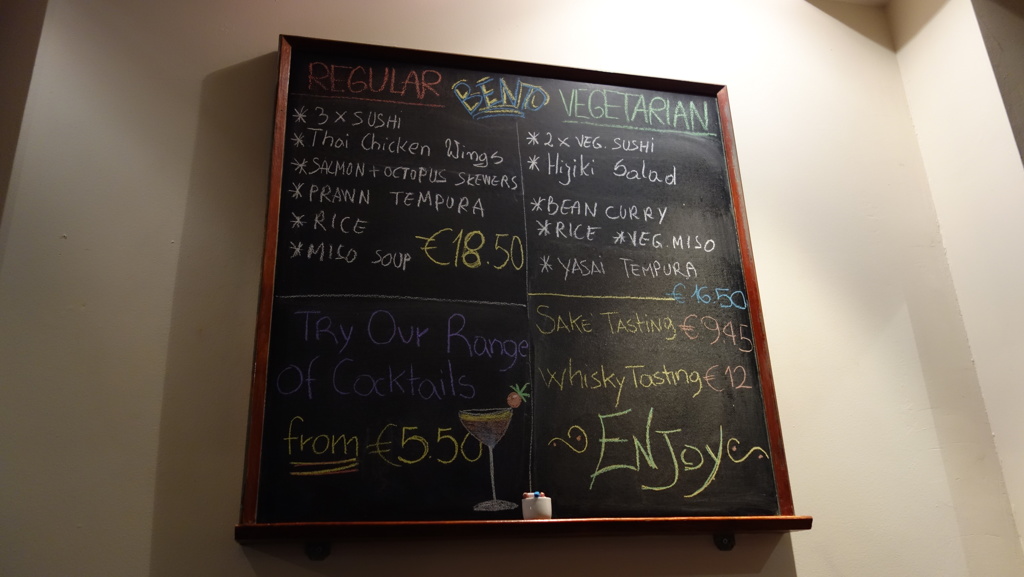 REGULAR BENTO VEGETARIAN
* 3 x SUSHI
* Thai Chicken Wings
* SALMON + OCTOPUS SKEWERS
* PRAWN TEMPURA
* RICE
* MISO SOUP €18.50
* 2 x VEG. SUSHI
* Hijiki Salad
* BEAN CURRY
* RICE * VEG. MISO
* YASAI TEMPURA
€16.50
Try Our Range
of Cocktails
from €5.50
SAKE TASTING €9.45
Whisky Tasting €12
ENJOY